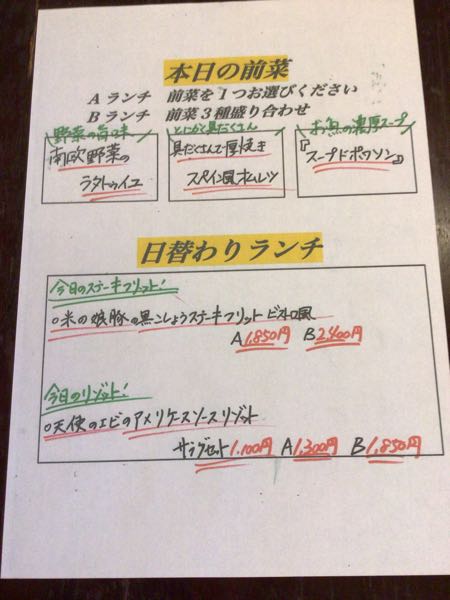 本日の前菜
Aランチ 前菜を1つお選びください
Bランチ 前菜3種盛り合わせ
野菜の旨味
南欧野菜の
ラタトゥイユ
とにかく具だくさん
具だくさんで厚焼き
スペイン風オムレツ
お魚の濃厚スープ
『スープドポワソン』
日替わりランチ
今日のステーキフリット!
○米の娘豚の黒こしょうステーキフリット ビストロ風
A 1,850円 B 2,400円
今日のリゾット!
○天使のエビのアメリケーヌソースリゾット
サラダセット 1,100円 A 1,300円 B 1,850円